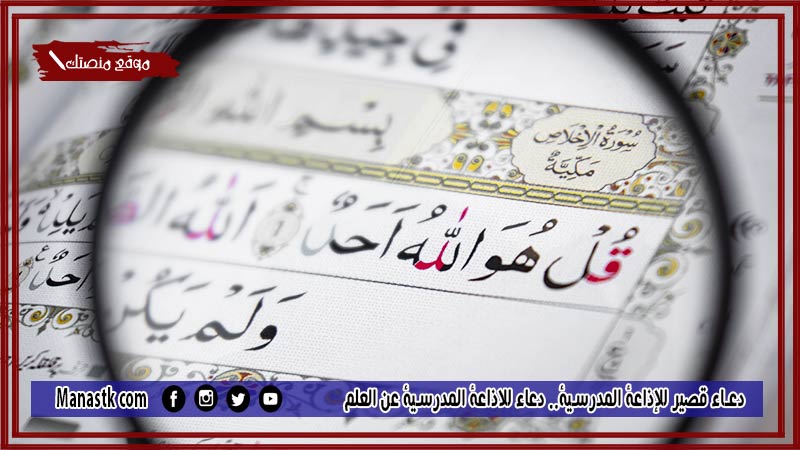 موقع منصتك
فِي
سُورَةُ الْاِخْلَاصِ
مَكِّيَّةٌ
بِسْمِ اللّٰهِ
قُلْ هُوَ اللّٰهُ اَحَدٌ ١ اَللّٰهُ
وَلَمْ
دعاء قصير للإذاعة المدرسية.. دعاء للاذاعة المدرسية عن العلم
Manastk com